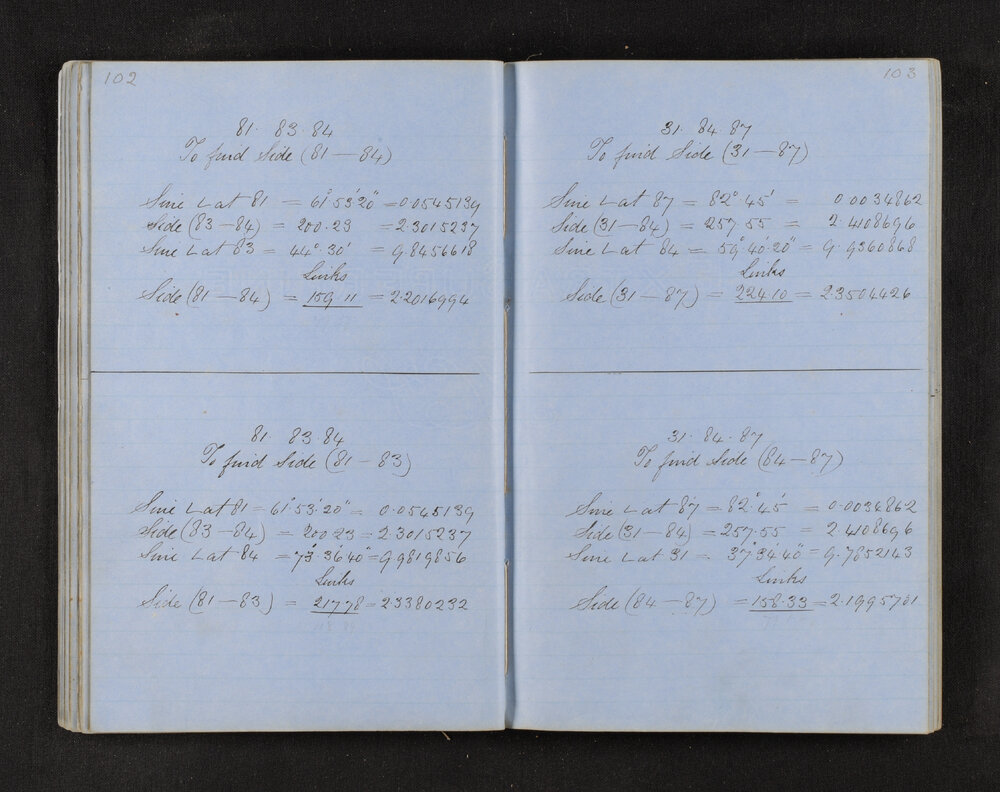 102
81. 83. 84
To find Side (81 — 84)
Sine ∠ at 81 = 61° 53' 20" = 0.0545139
Side (83 — 84) = 200.23 = 2.3015237
Sine ∠ at 83 = 44° 30' = 9.8456618
Links
Side (81 — 84) = 159.11 = 2.2016994
81. 83. 84
To find Side (81 — 83)
Sine ∠ at 81 = 61° 53' 20" = 0.0545139
Side (83 — 84) = 200.23 = 2.3015237
Sine ∠ at 84 = 73° 36' 40" = 9.9819856
Links
Side (81 — 83) = 217.78 = 2.3380232
103
31. 84. 87
To find Side (31 — 87)
Sine ∠ at 87 = 82° 45' = 0.0034862
Side (31 — 84) = 257.55 = 2.4108696
Sine ∠ at 84 = 59° 40' 20" = 9.9360868
Links
Side (31 — 87) = 224.10 = 2.3504426
31. 84. 87
To find Side (84 — 87)
Sine ∠ at 87 = 82° 45' = 0.0034862
Side (31 — 84) = 257.55 = 2.4108696
Sine ∠ at 31 = 37° 34' 40" = 9.7852143
Links
Side (84 — 87) = 158.33 = 2.1995701